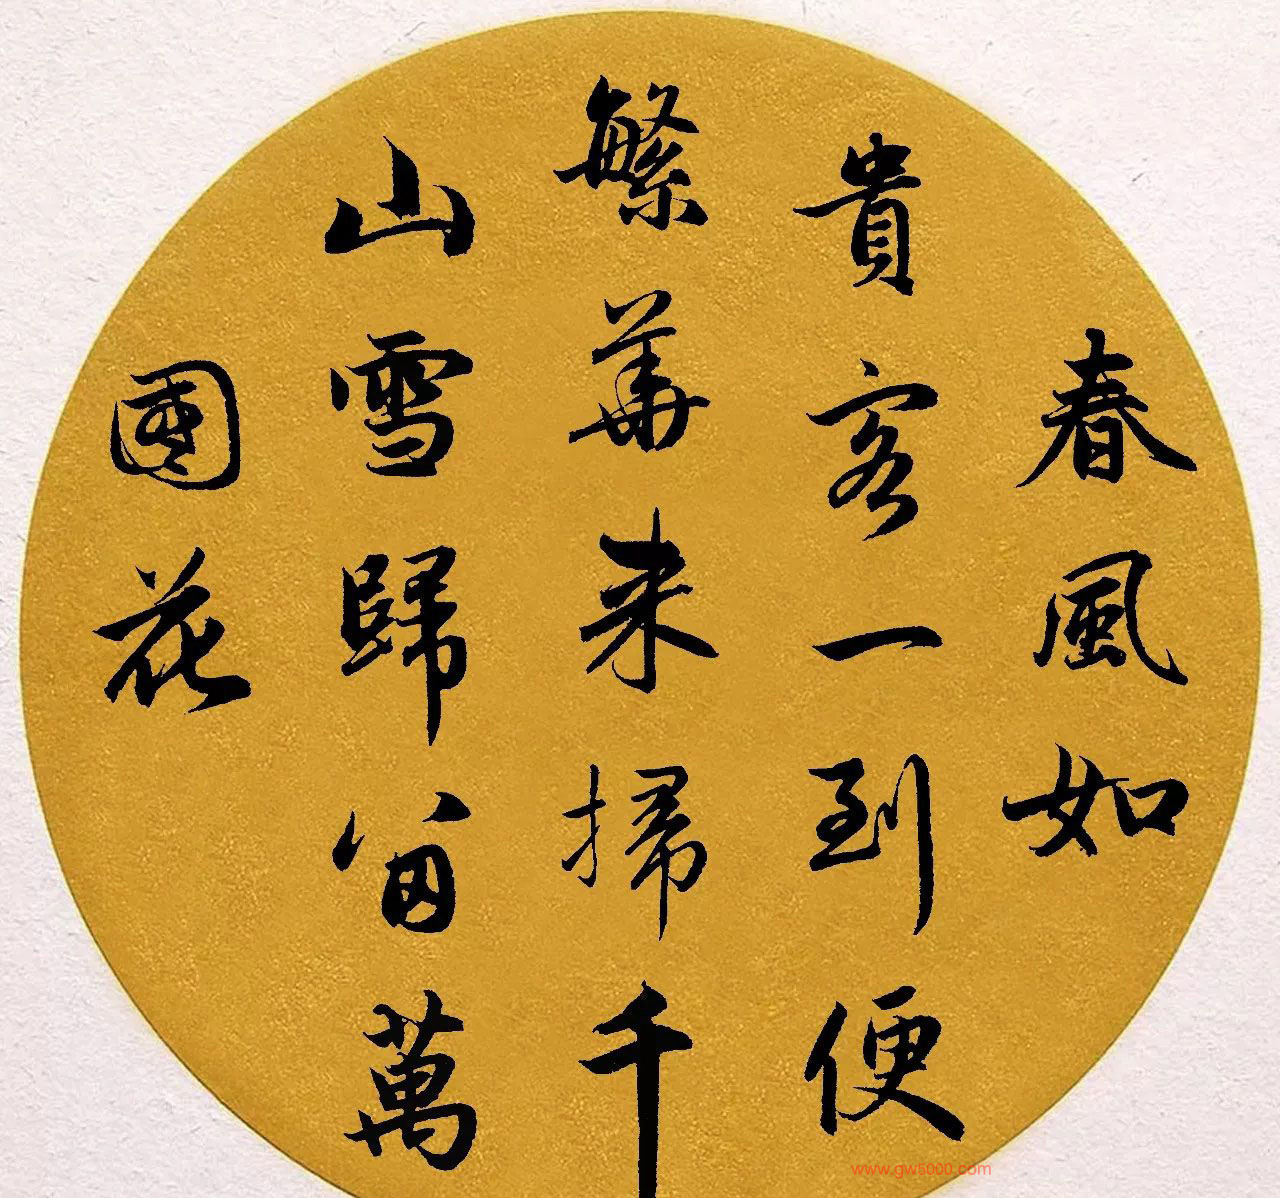 春風如
貴客一到便
繁華来掃千
山雪歸留萬
國花
www.gw5000.com